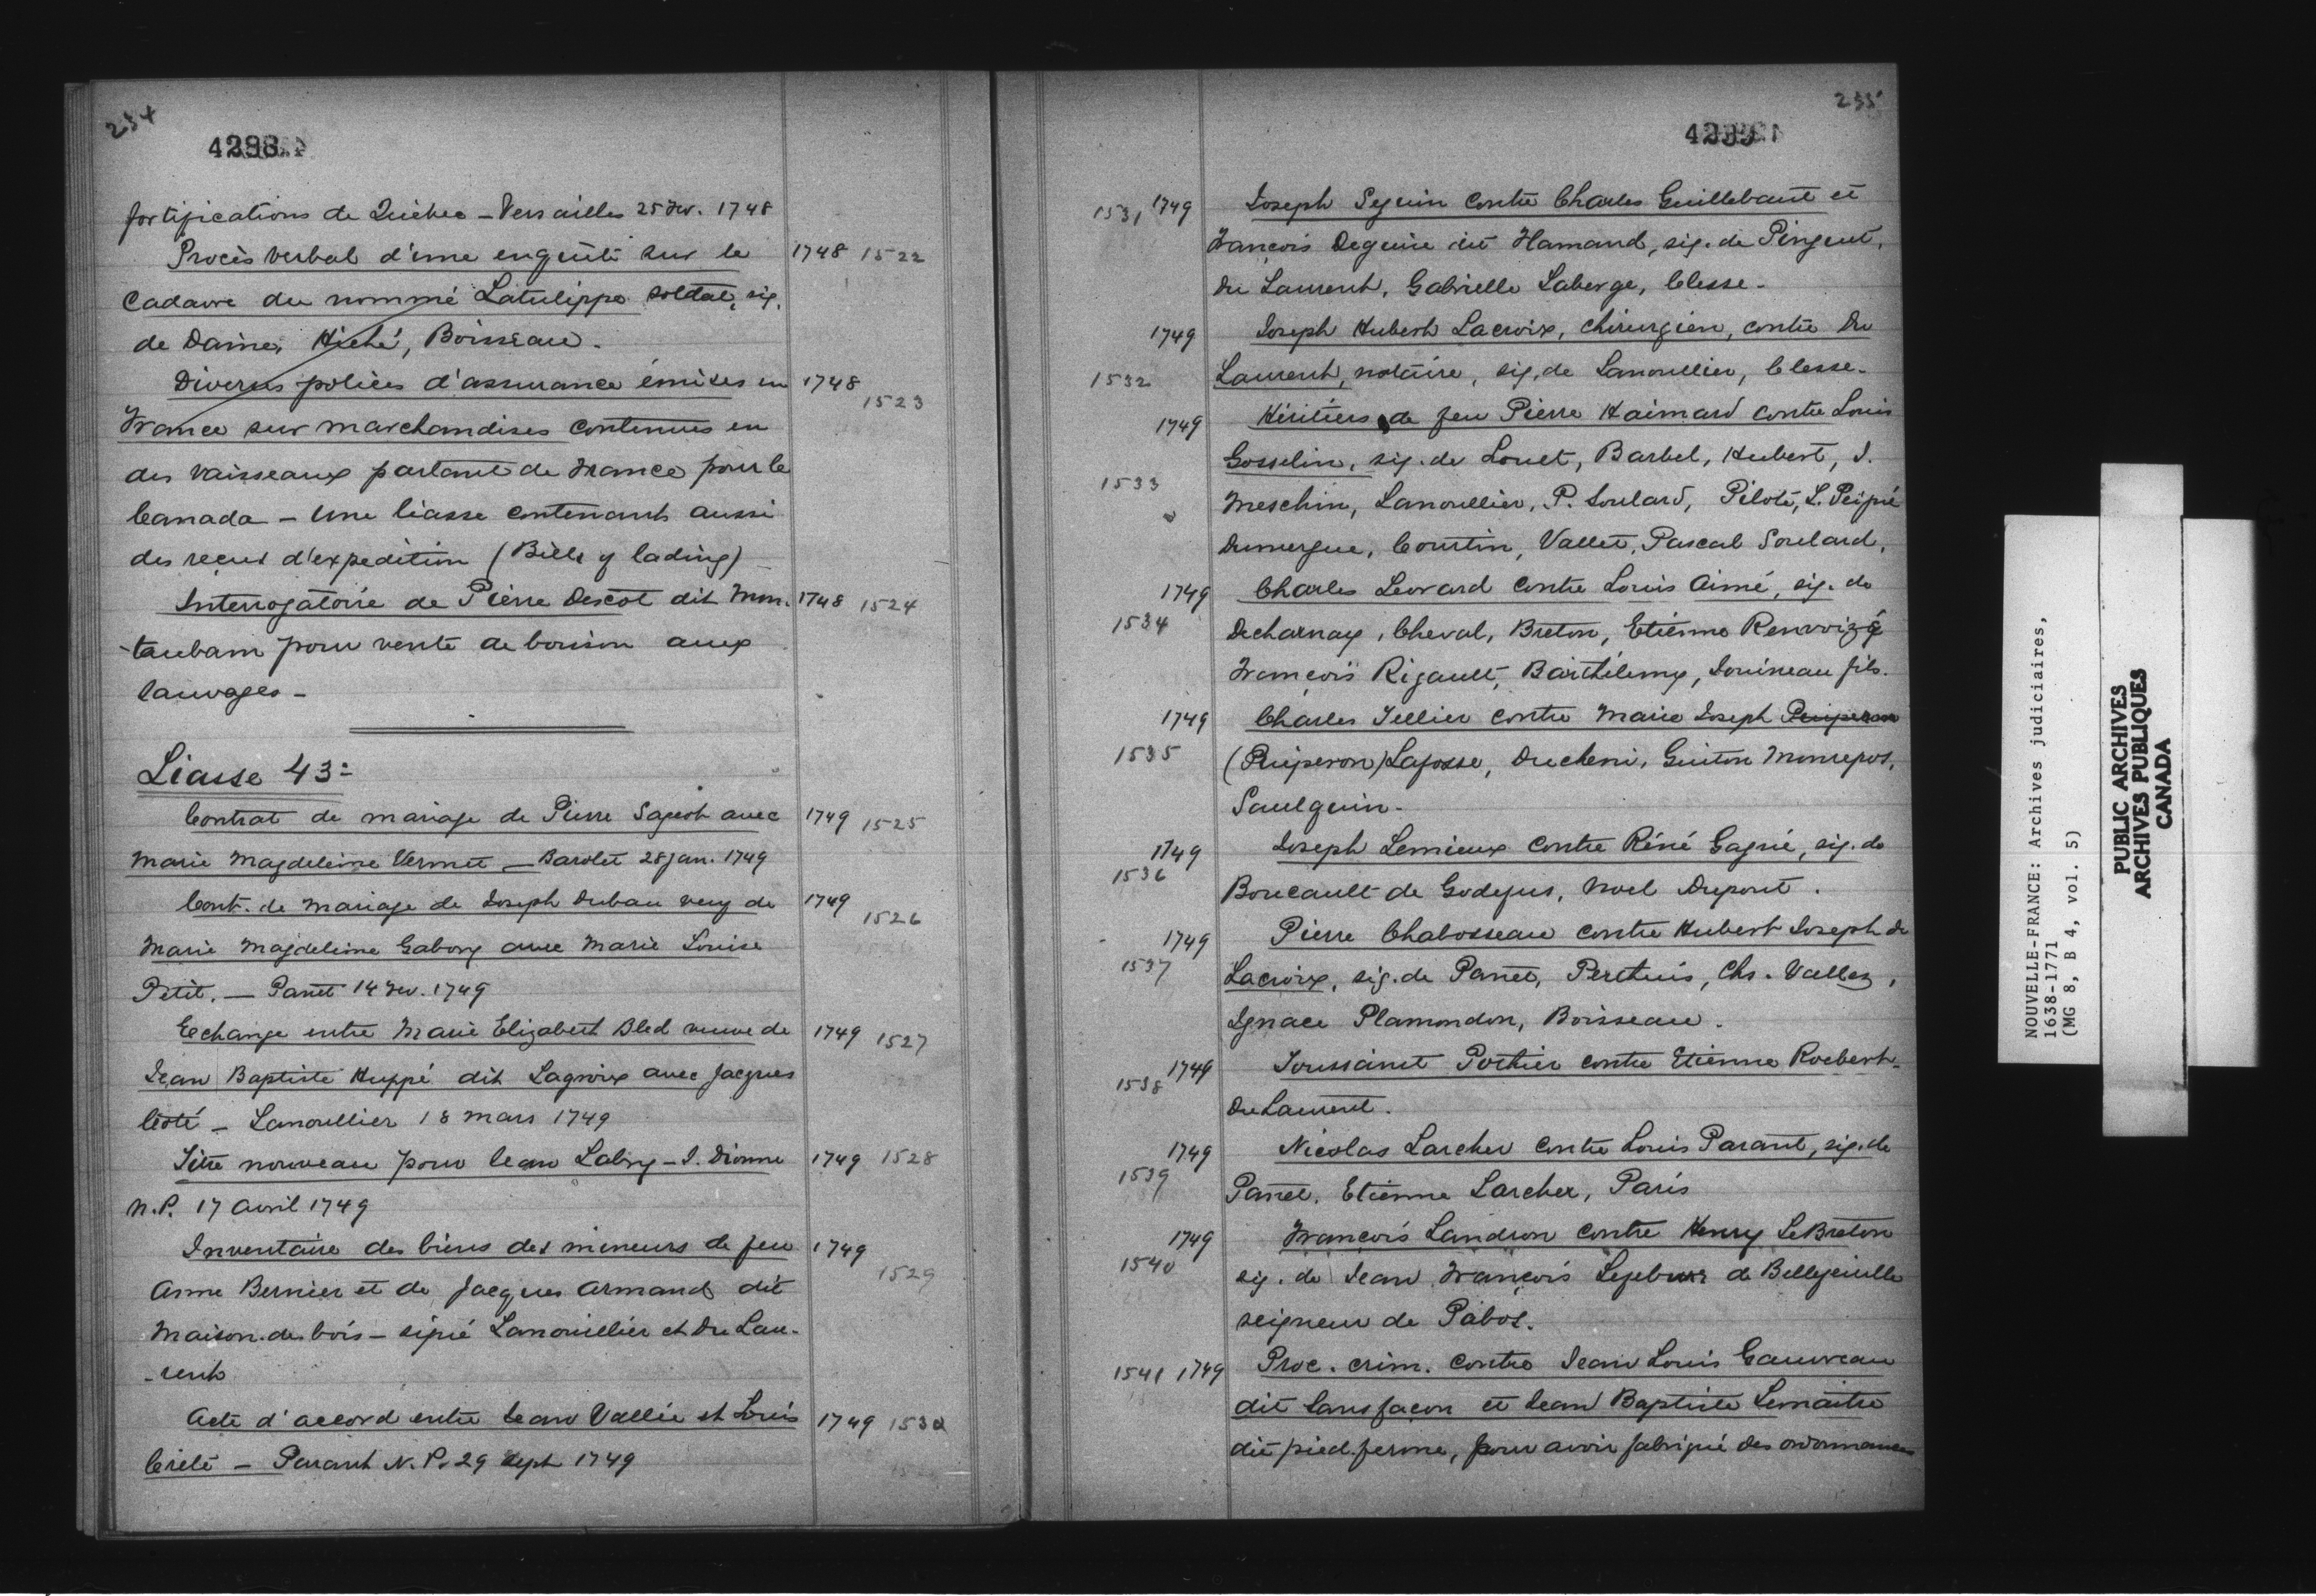 234
4298
fortifications de Québec - Versailles 25 Fev. 1748
Procès verbal d'une enquête sur le 1748 1522
cadavre du nommé Latulippe soldat, sig.
de Daine, Hiché, Boisseau.
Diverses polices d'assurance émises en 1748
1523
France sur marchandises contenues en
des vaisseaux partant de France pour le
Canada - Une liasse contenant aussi
des reçus d'expedition (Bills of lading)
Interrogatoire de Pierre Descot dit Mon- 1748 1524
-taubam pour vente de boison aux
sauvages -
Liasse 43e
Contrat de mariage de Pierre Sageot avec 1749 1525
Marie Magdeleine Vermet - Barolet 28 jan. 1749
Cont. de mariage de Joseph Dubau veuf de 1749
1526
Marie Magdeleine Gabory avec Marie Louise
Petit. - Panet 14 Fev. 1749
Echange entre Marie Elizabert Bled veuve de 1749 1527
Jean Baptiste Huppé dit Lagroix avec Jacques
Coté - Lanoullier 18 Mars 1749
Titre nouveau pour Jean Labry - J. Dionne 1749 1528
N.P. 17 Avril 1749
Inventaire des biens des mineurs de feu 1749
1529
Anne Bernier et de Jacques Armand dit
Maison-des-bois - signé Lanouillier et Du Lau-
-rent
Acte d'accord entre Jean Vallée et Louis 1749 1530
Crété - Parant N.P. 29 Sept 1749
235
4299
1531 1749 Joseph Seguin contre Charles Guillebaut et
François Deguire dit Hamand, sig. de Pinguet,
Du Laurent, Gabrielle Laberge, Clesse -
1749 Joseph Hubert Lacroix, chirurgien, contre Du
1532 Laurent, notaire, sig. de Lanoullier, Clesse -
1749 Héritiers de feu Pierre Haimard contre Louis
Gosselin, sig. de Louet, Barbel, Hubert, J.
1533 Meschin, Lanoullier, P. Soulard, Pilote, L.
Dumergue, Courtin, Vallet, Pascal Soulard,
1749 Charles Levrard contre Louis Aimé, sig. de
1534 Decharnay, Cheval, Breton, Etienne Renvoizé
François Rigault, Barthélemy, Jouineau fils.
1749 Charles Tellier contre Marie Joseph
1535 (Peuperon) Lafosse, Ducheni, Guiton Monrepos,
Saulquin -
1749 Joseph Lemieux contre Réné Gagné, sig. de
1536 Boucault de Godefus, Noel Dupont.
1749 Pierre Chabosseau contre Hubert Joseph de
1537 Lacroix, sig. de Panet, Perthuis, Chs. Vallez,
Ignace Plamondon, Boisseau.
1749 Toussaint Portier contre Etienne Roebert -
1538
Du Laurent.
1749 Nicolas Larcher contre Louis Parant, sig. de
1539 Panet, Etienne Larcher, Paris
1749 François Landron contre Henry LeBreton
1540 sig. de Jean François Lefebvre de Bellefeuille
seigneur de Pabos.
1541 1749 Proc. crim. contre Jean Louis Gauvreau
dit Sansfaçon et Jean Baptiste Lemaitre
dit pied-ferme, pour avoir fabriqué des ordonnances
NOUVELLE-FRANCE: Archives judiciaires,
1638-1771
(MG 8, B 4, vol. 5)
PUBLIC ARCHIVES
ARCHIVES PUBLIQUES
CANADA